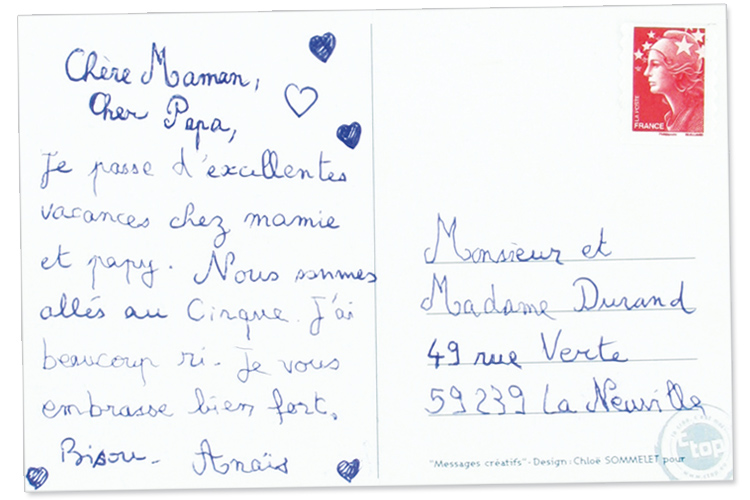 Chère Maman,
Cher Papa,
Je passe d'excellentes
vacances chez mamie
et papy. Nous sommes
allés au Cirque. J'ai
beaucoup ri. Je vous
embrasse bien fort.
Bisou. Anaïs
LA POSTE
FRANCE
Monsieur et
Madame Durand
49 rue Verte
59239 La Neuville
"Messages créatifs" - Design : Chloë SOMMELET pour
top